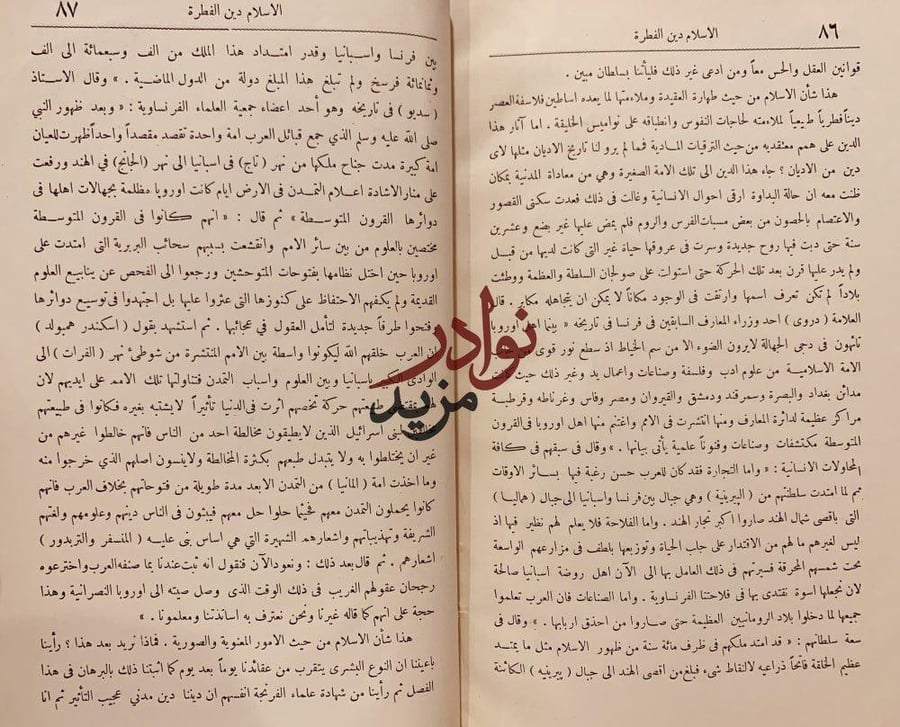 ٨٦
الاسلام دين الفطرة
قوانين العقل والحس معاً ومن ادعى غير ذلك فليأتنا بسلطان مبين .
هذا شأن الاسلام من حيث طهارة العقيدة وملاءمتها لما يعده اساطين فلاسفة العصر
ديناً فطرياً طبيعياً لملاءمته لحاجات النفوس وانطباقه على نواميس الخليقة . اما آثار هذا
الدين على همم معتقديه من حيث الترقيات المادية فما لم يرو لنا تاريخ الاديان مثلها لاى
دين من الاديان ؟ جاء هذا الدين الى تلك الامة الصغيرة وهي من معاداة المدنية بمكان
ظنت معه ان حالة البداوة ارقى احوال الانسانية وغالت في ذلك فعدت سكنى القصور
والاعتصام بالحصون من بعض مسبات الفرس والروم فلم يمض عليها غير بضع وعشرين
سنة حتى دبت فيها روح جديدة وسرت في عروقها حياة غير التى كانت لديها من قبل
ولم يدر عليها قرن بعد تلك الحركة حتى استولت على صولجان السلطة والعظمة ووطئت
بلاداً لم تكن تعرف اسمها وارتقت في الوجود مكاناً لا يمكن ان يتجاهله مكابر . قال
العلامة ( دروى ) احد وزراء المعارف السابقين في فرنسا في تاريخه « بينما اهل اوروبا
تائهون في دجى الجهالة لايرون الضوء الا من سم الخياط اذ سطع نور قوى من جانب
الامة الاسلامية من علوم ادب وفلسفة وصناعات واعمال يد وغير ذلك حيث كانت
مدائن بغداد والبصرة وسمرقند ودمشق والقيروان ومصر وفاس وغرناطه وقرطبة
مراكز عظيمة لدائرة المعارف ومنها انتشرت في الامم واغتنم منها اهل اوروبا في القرون
المتوسطة مكتشفات وصناعات وفنوناً علمية يأتى بيانها . » وقال في سبقهم في كافة
المحاولات الانسانية : « واما التجارة فقد كان للعرب حسن رغبة فيها بسائر الاوقات
ثم لما امتدت سلطنتهم من ( البرينية ) وهي جبال بين فرنسا واسبانيا الى جبال ( هماليا )
التى باقصى شمال الهند صاروا اكبر تجار الهند . واما الفلاحة فلا يعلم لهم نظير فيها اذ
ليس لغيرهم ما لهم من الاقتدار على جلب الحياة وتوزيعها بلطف في مزارعهم الواسعة
تحت شمسهم المحرقة فسيرتهم في ذلك العامل بها الى الآن اهل روضة اسبانيا صالحة
لان نجعلها اسوة نقتدى بها في فلاحتنا الفرنساوية . واما الصناعات فان العرب تعلموا
جميعها لما دخلوا بلاد الرومانيين العظيمة حتى صاروا من احذق اربابها . » وقال في
سعة سلطانهم : « قد امتد ملكهم في ظرف مائة سنة من ظهور الاسلام مثل ما يمتد
عظيم الخلقة فاتحاً ذراعيه لالتقاط شىء فبلغ من اقصى الهند الى جبال ( بيرينيه ) الكائنة
٨٧
الاسلام دين الفطرة
بين فرنسا واسبانيا وقدر امتداد هذا الملك من الف وسبعمائة الى الف
وثمانمائة فرسخ ولم تبلغ هذا المبلغ دولة من الدول الماضية . » وقال الاستاذ
( سديو ) في تاريخه وهو أحد اعضاء جمعية العلماء الفرنساوية : « وبعد ظهور النبي
صلى الله عليه وسلم الذي جمع قبائل العرب امة واحدة تقصد مقصداً واحداً ظهرت للعيان
امة كبيرة مدت جناح ملكها من نهر ( تاج ) في اسبانيا الى نهر ( الجانج ) في الهند ورفعت
على منار الاشادة اعلام التمدن في الارض ايام كانت اوروبا مظلمة بجهالات اهلها في
القرون المتوسطة » ثم قال : « انهم كانوا في القرون المتوسطة
مختصين بالعلوم من بين سائر الامم وانقشعت بسببهم سحائب البربرية التى امتدت على
اوروبا حين اختل نظامها بفتوحات المتوحشين ورجعوا الى الفحص عن ينابيع العلوم
القديمة ولم يكفهم الاحتفاظ على كنوزها التى عثروا عليها بل اجتهدوا في توسيع دوائرها
وفتحوا طرقاً جديدة لتأمل العقول في عجائبها . ثم استشهد بقول ( اسكندر همبولد )
ان العرب خلقهم الله ليكونوا واسطة بين الامم المنتشرة من شوطئ نهر ( الفرات ) الى
الوادى الكبير باسبانيا وبين العلوم واسباب التمدن فتناولتها تلك الامم على ايديهم لان
حركة تخصهم اثرت في الدنيا تأثيراً لا يشتبه بغيره فكانوا في طبيعتهم
بنى اسرائيل الذين لا يطيقون مخالطة احد من الناس فانهم خالطوا غيرهم من
غير ان يختلطوا به ولا يتبدل طبعهم بكثرة المخالطة ولاينسون اصلهم الذي خرجوا منه
وما اخذت امة ( المانيا ) من التمدن الا بعد مدة طويلة من فتوحاتهم بخلاف العرب فانهم
كانوا يحملون التمدن معهم فحيثما حلوا حل معهم فيبثون في الناس دينهم وعلومهم ولغتهم
الشريفة وتهذيباتهم واشعارهم الشهيرة التى هي اساس بنى عليه ( المنسفر والتربدور )
اشعارهم . ثم قال بعد ذلك : ونعود الآن فنقول انه ثبت عندنا بما صنفه العرب واخترعوه
رجحان عقولهم الغريب في ذلك الوقت الذى وصل صيته الى اوروبا النصرانية وهذا
حجة على انهم كما قاله غيرنا ونحن نعترف به اساتذتنا ومعلمونا . »
هذا شأن الاسلام من حيث الامور المعنوية والصورية . فماذا نريد بعد هذا ؟ رأينا
باعيننا ان النوع البشرى يتقرب من عقائدنا يوماً بعد يوم كما اثبتنا ذلك بالبرهان في هذا
الفصل ثم رأينا من شهادة علماء الفرنجة انفسهم ان ديننا دين مدني عجيب التأثير ثم انا
نوادر
مزيد